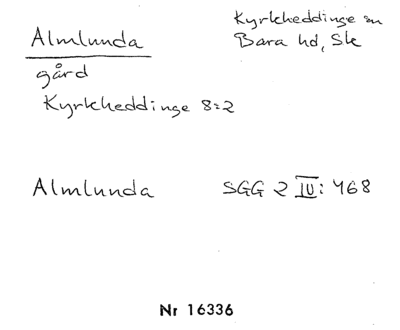 Almlunda
gård
Kyrkheddinge 8:2
Kyrkheddinge sn
Bara hd, Sk
Almlunda
SGG 2 IV: 468
Nr 16336